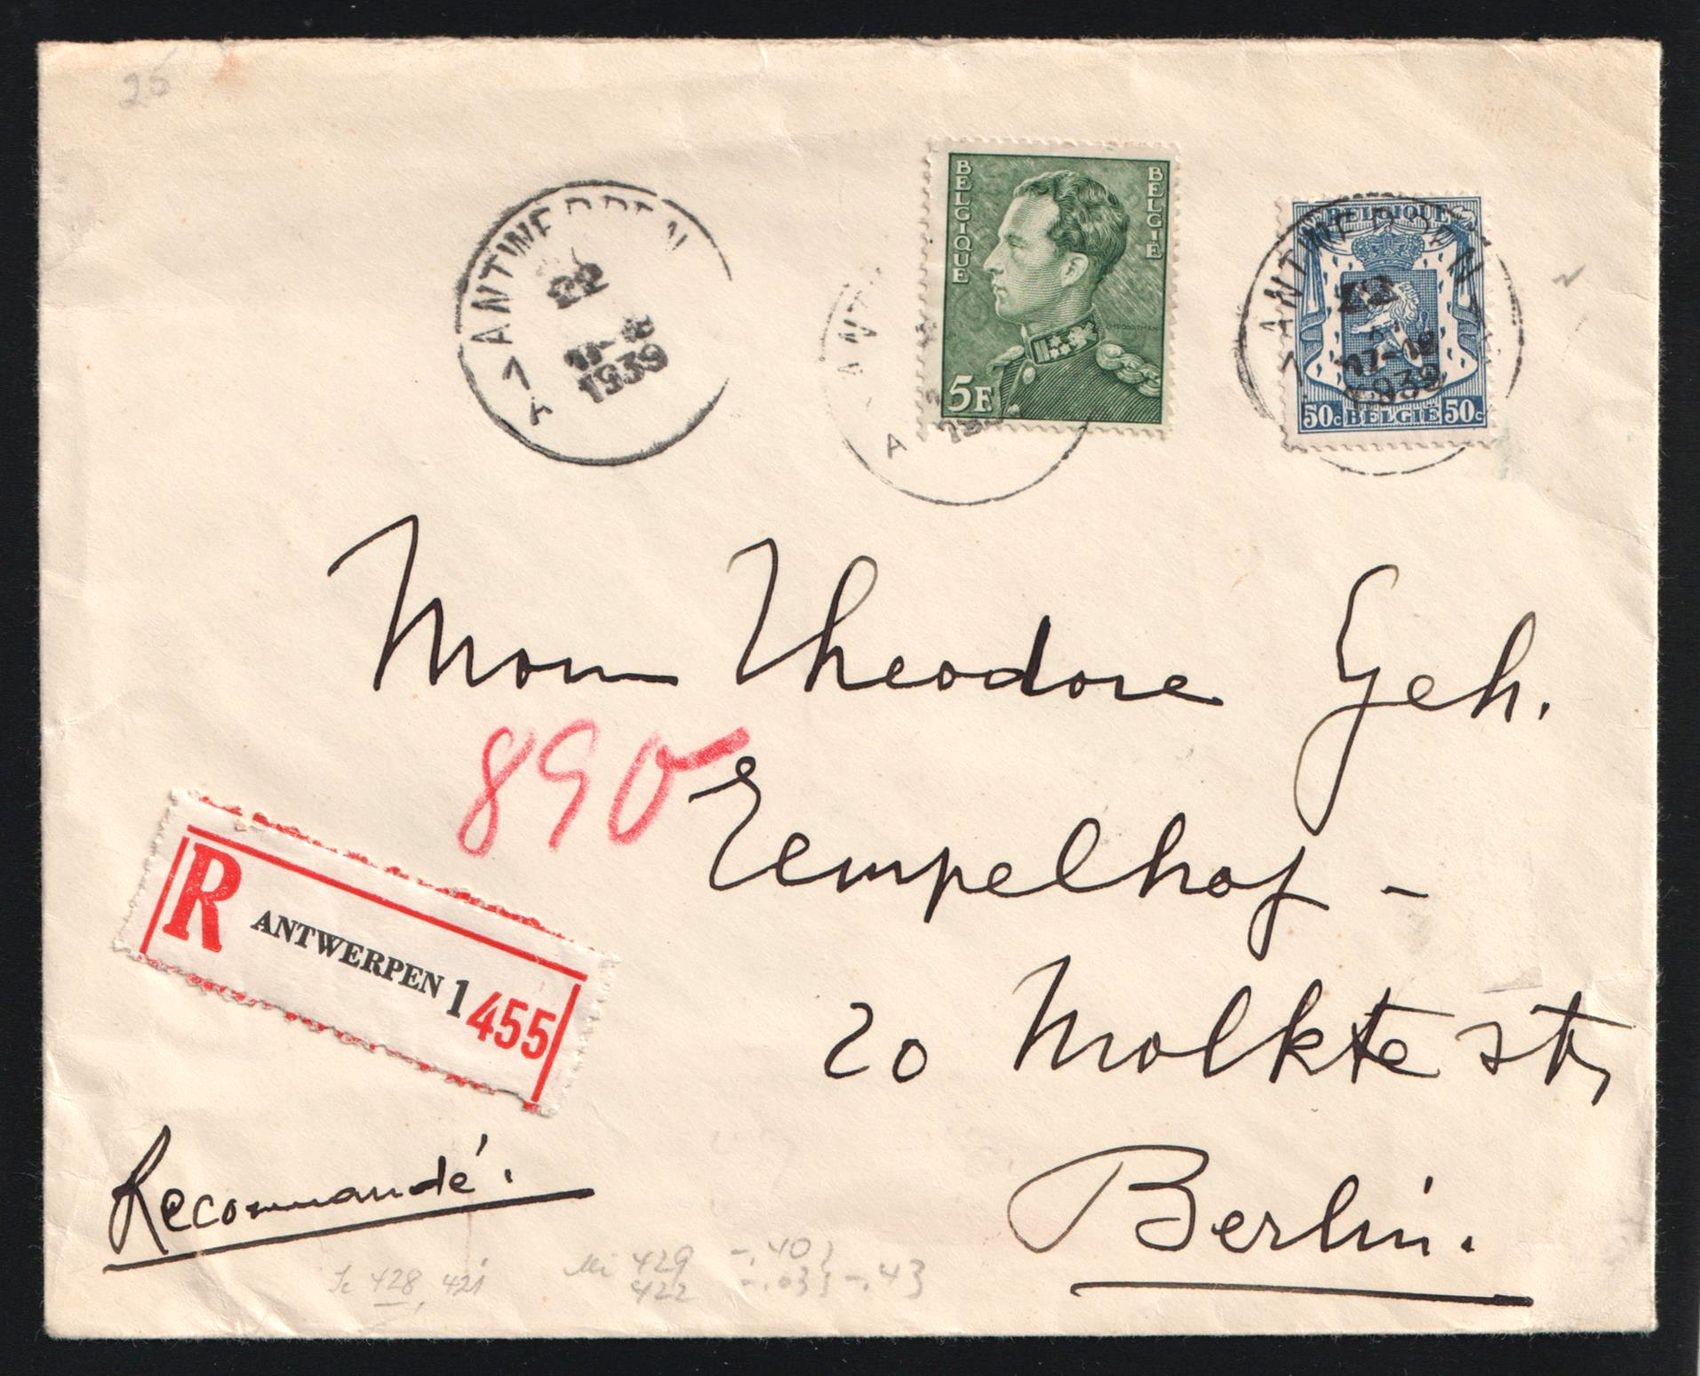 25
ANTWERPEN
22
17-18
1939
1 A
BELGIQUE
BELGIË
5F
ANT
A
BELGIQUE
ANTWERPEN
22
17-18
1939
50c BELGIË 50c
Monr Theodore Geh.
890
Tempelhof -
R ANTWERPEN 1 455
20 Moltke str,
Recommandé.
Berlin.
Sc 428, 421
Mi 429 -.40}
422 -.03} -.43